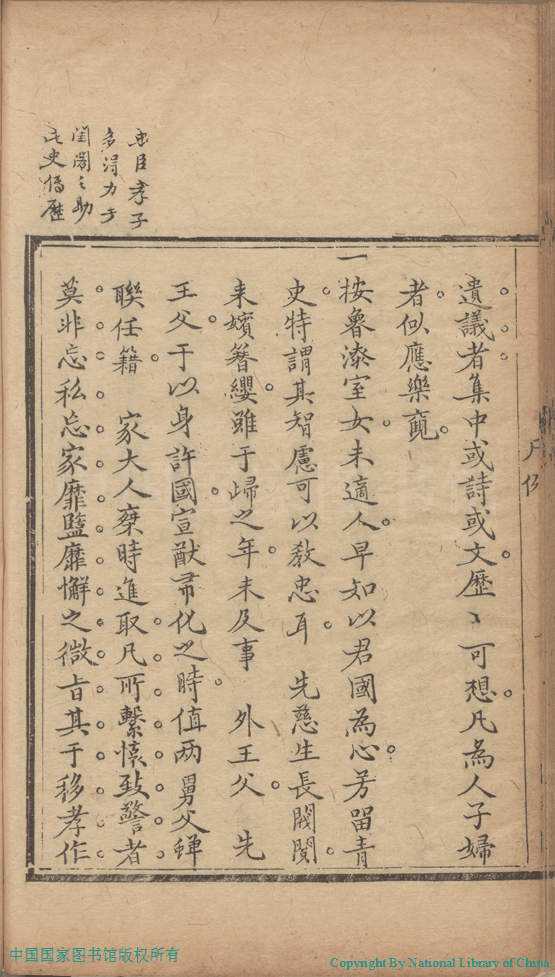 忠臣孝子
多得力于
閨閣之助
此史倨歷
凡例
遺議者集中或詩或文歷〻可想凡為人子婦
者似應樂窺
一按魯漆室女未適人早知以君國為心芳留青
史特謂其智慮可以教忠耳 先慈生長閥閱
来嬪簪纓雖于歸之年未及事 外王父 先
王父于以身許國宣猷帀化之時值两舅父蟬
聯任籍 家大人乘時進取凡所繫懷致警者
莫非忘私忘家靡盬靡懈之微旨其于移孝作
中国国家图书馆版权所有
Copyright By National Library of China